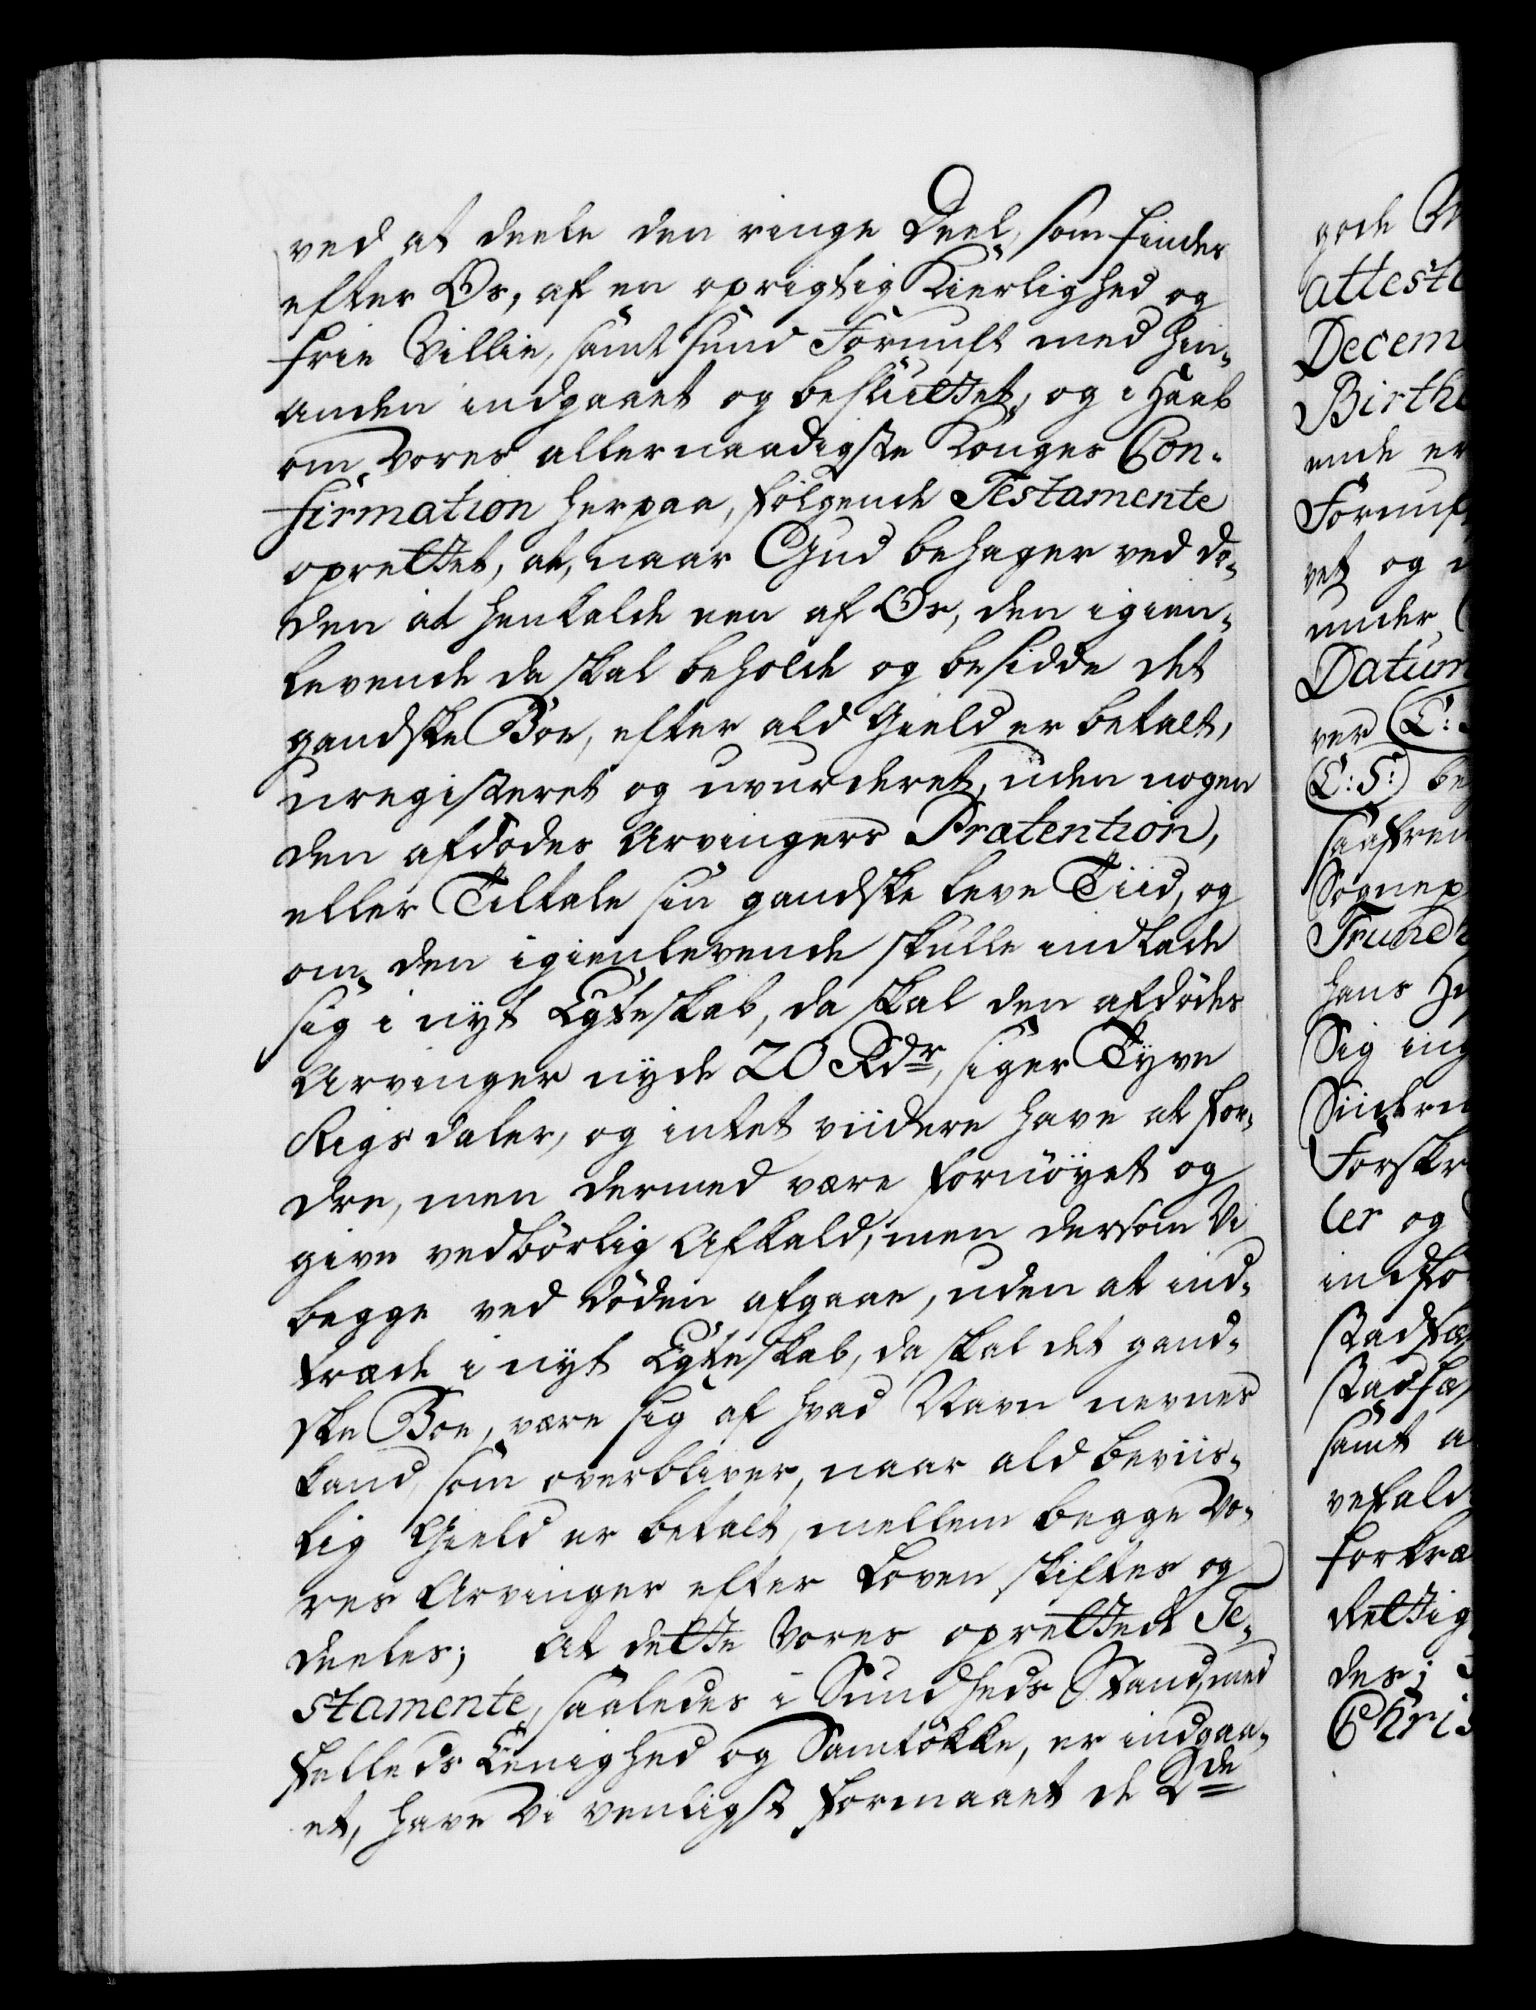 ved at deele den ringe Deel, som findes
efter Os, af en oprigtig Kierlighed og
frie Villie, samt sund Fornuft med hin-
anden indgaaet og besluttet, og i Haab
om vores allernaadigste Konges Con-
firmation herpaa, følgende Testamente
oprettet, at, naar Gud behager ved Dø-
den at henkalde een af Os, den igien-
levende da skal beholde og besidde det
gandske Boe, efter ald Gield er betalt,
uregisteret og uvurderet, uden nogen
den afdødes Arvingers Prætention,
eller Tiltale sin gandske leve Tiid, og
om den igienlevende skulle indlade
sig i nyt Egteskab, da skal den afdødes
Arvinger nyde 20 Rdr, siger Tyve
Rigsdaler, og intet viidere have at for-
dre, men dermed være fornøyet og
give vedbørlig Afkald, men dersom Vi
begge ved Døden afgaae, uden at ind-
træde i nyt Egteskab, da skal det gand-
ske Boe, være sig af hvad Navn nevnes
kand, som overbliver, naar ald beviis-
lig Gield er betalt, mellem begge Vo-
res Arvinger efter Loven skiftes og
deeles; At dette Vores oprettede Te-
stamente, saaledes i Sundheds Stand, med
felleds Eenighed og Samtøkke, er indgaa-
et, have Vi venligst formaaet de 2de
gode
atteste
Decem
Birthe
ende er
Fornuf
vet og
under
Datum
ver (L:
L:S:) be
saafrem
Sognep
Trundh
hans
Sig ing
Forskr
ler og
indfø
Stadfæ
Stadfæ
samt a
befald
fortræ
dettig
des;
Chris